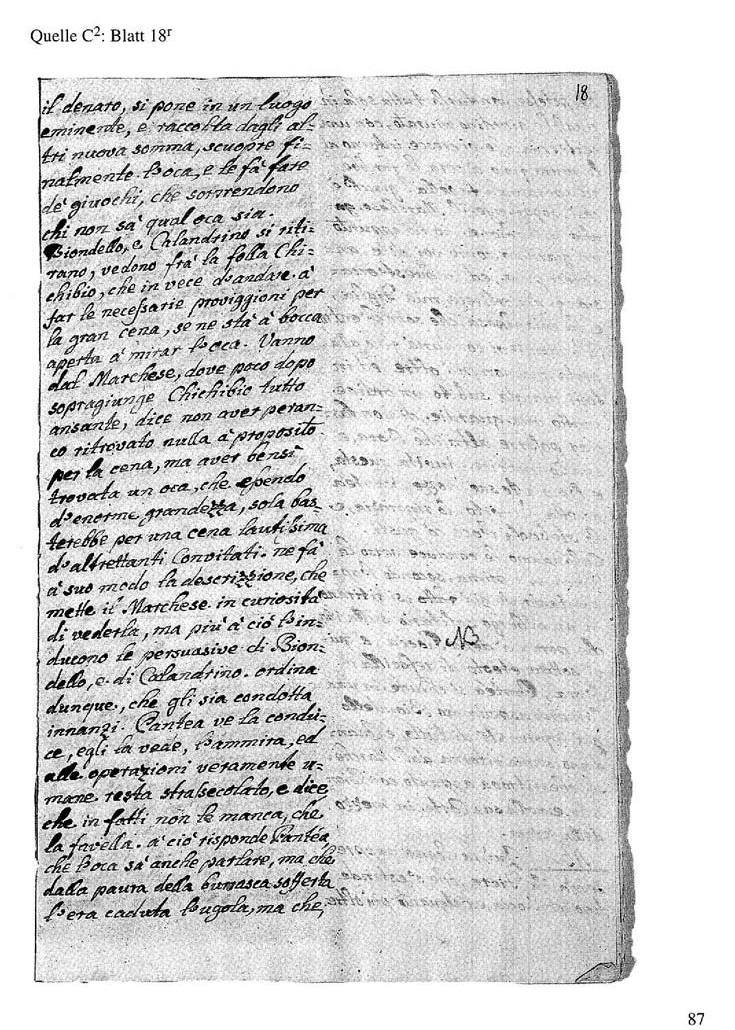 Quelle C²: Blatt 18ʳ
18
il denaro, si pone in un luogo
eminente, e raccolta dagli al=
tri nuova somma, scuopre fi=
nalmente l'oca, e le fà fare
de' giuochi, che sorprendono
chi non sà qual oca sia.
Biondello, e Calandrino si riti=
rano, vedono frà la folla Chi=
chibio, che in vece d'andare à
far le necessarie proviggioni per
la gran cena, se ne stà à bocca
aperta à mirar l'oca. Vanno
dal Marchese, dove poco dopo
sopragiunge Chichibio tutto
ansante, dice non aver peran=
co ritrovato nulla à proposito
per la cena, ma aver bensì
trovata un oca, che essendo
d'enorme grandezza, sola bas=
terebbe per una cena lautissima
d'altrettanti Convitati. ne fà
à suo modo la descrizzione, che
mette il Marchese in curiosità
di vederla, ma più à ciò l'in=
ducono le persuasive di Bion=
dello, e di Calandrino. ordina
dunque, che gli sia condotta
innanzi. Pantea ve la condu=
ce, egli la vede, l'ammira, ed
alle operazioni veramente u=
mane resta strasecolato, e dice,
che in fatti non le manca, che
la favella. à ciò risponde Pantea
che l'oca sà anche parlare, ma che
dalla paura della burrasca sofferta
l'era caduta l'ugola, ma che,
NB
87